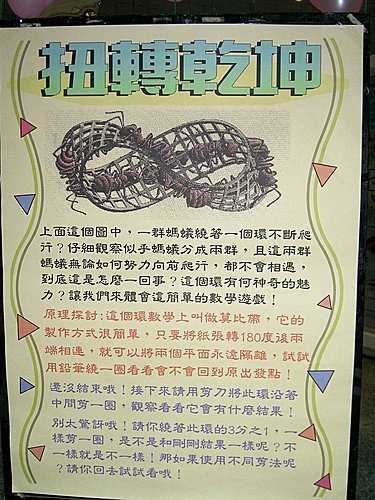 扭轉乾坤
上面這個圖中，一群螞蟻繞著一個環不斷爬
行？仔細觀察似乎螞蟻分成兩群，且這兩群
螞蟻無論如何努力向前爬行，都不會相遇，
到底這是怎麼一回事？這個環有何神奇的魅
力？讓我們來體會這簡單的數學遊戲！
原理探討：這個環數學上叫做莫比帶，它的
製作方式很簡單，只要將紙張轉180度後兩
端相連，就可以將兩個平面永遠隔離，試試
用鉛筆繞一圈看看會不會回到原出發點！
還沒結束哦！接下來請用剪刀將此環沿著
中間剪一圈，觀察看看它會有什麼結果！
別太驚訝哦！請你繞著此環的3分之1，一
樣剪一圈，是不是和剛剛結果一樣呢？不
一樣就是不一樣！那如果使用不同剪法呢
？請你回去試試看哦！